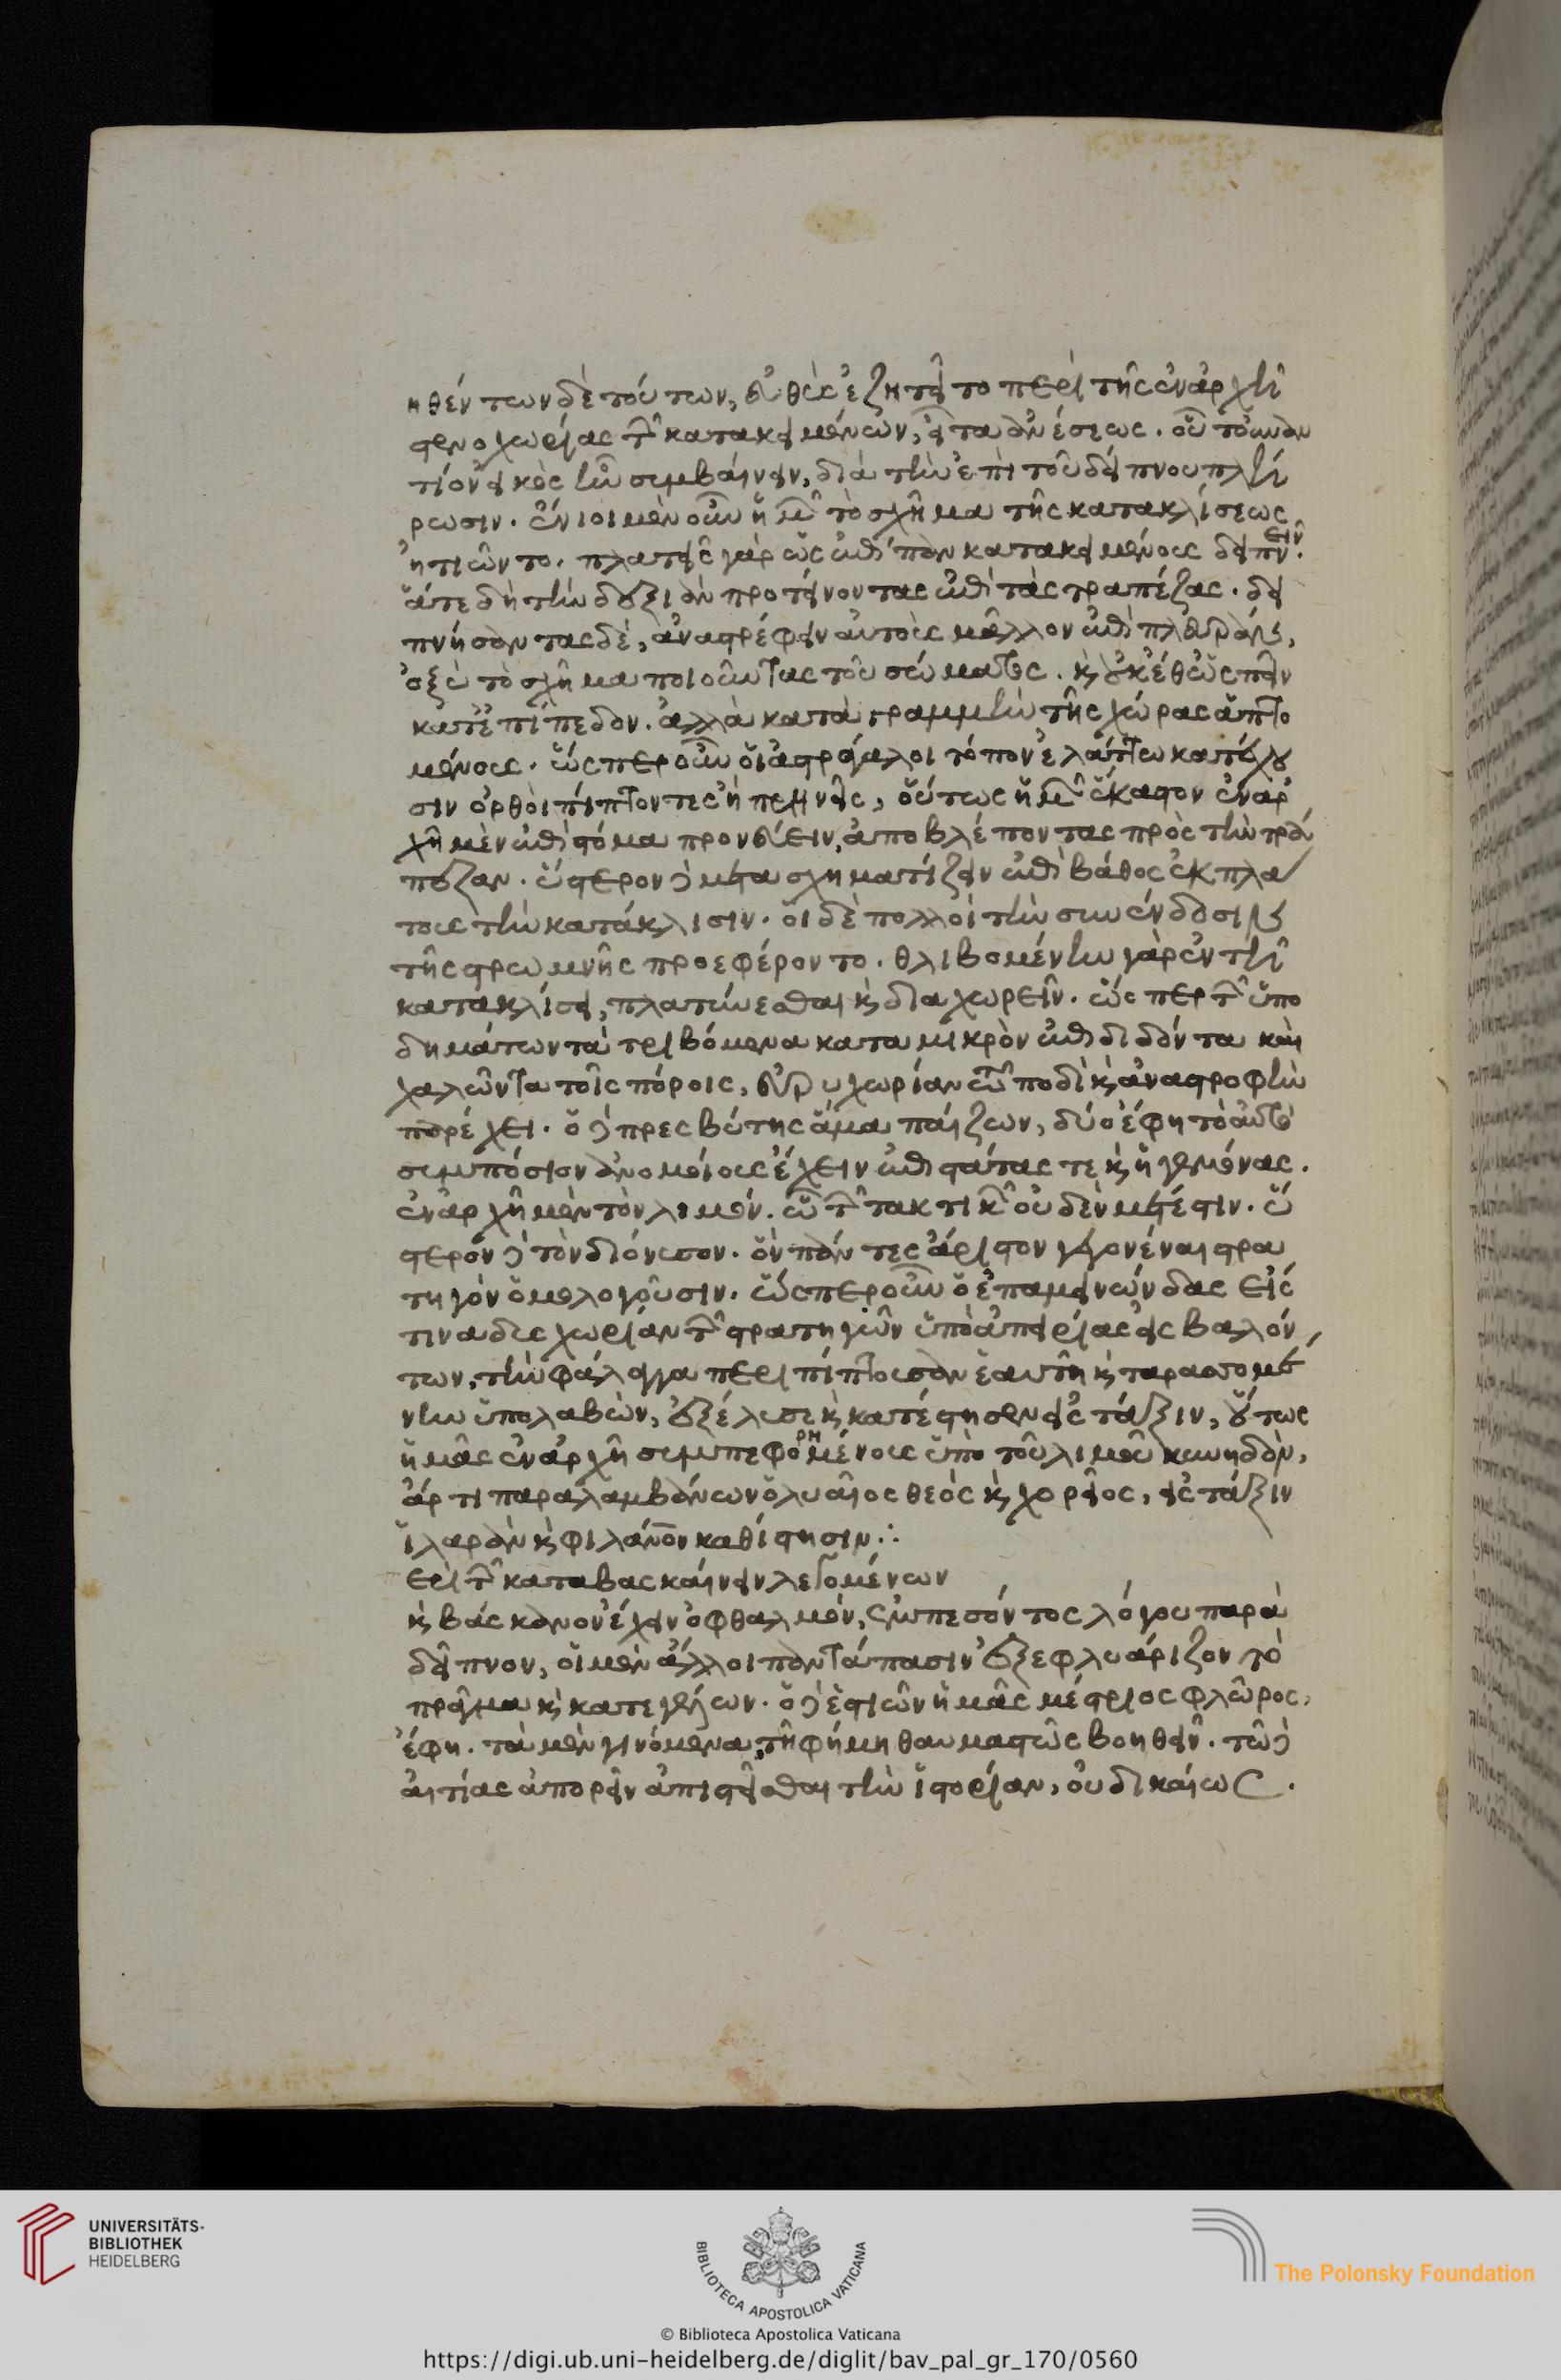 ηθέντων δὲ τούτων, εὐθὺς ἐζητεῖτο περὶ τῆς ἐν ἀρχῆ
στενοχωρίας τῶν κατακειμένων, εἶτα ἀνέσεως. οὗ τοὐναν
τίον εἰκὸς ἦν συμβαίνειν, διὰ τὴν ἐπὶ τοῦ δείπνου πλή
ρωσιν. ἔνιοι μὲν οὖν ἡμῶν τὸ σχῆμα τῆς κατακλίσεως
ἠτιῶντο. πλατεῖς γὰρ ὡς ἐπίπαν κατακειμένους δειπνεῖν.
ἅτε δὴ τὴν δεξιὰν προτείνοντας ἐπὶ τὰς τραπέζας. δει
πνήσαντας δὲ, ἀναστρέφειν αὐτοὺς μᾶλλον ἐπὶ πλευρὰν,
ὀξὺ τὸ σχῆμα ποιοῦντας τοῦ σώματος. κ οὐκέθ ὥς πειν
κατ' ἐπίπεδον. ἀλλὰ κατὰ γραμμὴν τῆς χώρας ἁπτο
μένους. ὥς περ οὖν οἱ ἀστράγαλοι τόπον ἐλάττω κατέχου
σιν ὀρθοὶ πίπτοντες ἢ πρηνεῖς, οὕτως ἡμῶν ἕκαστον ἐν ἀρ
χῆ μὲν ἐπὶ στόμα προνεύειν, ἀποβλέποντας πρὸς τὴν τρά
πεζαν. ὕστερον δὲ μετασχηματίζειν ἐπὶ βάθος ἐκ πλά
τους τὴν κατάκλισιν. οἱ δὲ πολλοὶ τὴν συνένδοσιν
τῆς στρωμνῆς προεφέροντο. θλιβομένην γὰρ ἐν τῆ
κατακλίσει, πλατύνεσθαι κ διαχωρεῖν. ὥς περ τῶν ὑπο
δημάτων τὰ τριβόμενα κατα μικρὸν ἐπιδιδόντα καὶ
χαλῶντα τοῖς πόροις, εὐρυχωρίαν τῶ ποδὶ κ ἀναστροφὴν
παρέχει. ὁ δὲ πρεσβύτης ἅμα παίζων, δύο ἔφη τὸ αὐτὸ
συμπόσιον ἀνομοίους ἔχειν ἐπιστάτας τε κ ἡγεμόνας.
ἐν ἀρχῆ μὲν τὸν λιμόν. ὧ τῶν τακτικῶν οὐδὲν μέτεστιν. ὕ
στερον δὲ τὸν διόνυσον. ὃν πάντες ἄριστον γεγονέναι στρα
τηγὸν ὁμολογοῦσιν. ὥς περ οὖν ὁ ἐπαμεινώνδας εἰς
τινα δυσχωρίαν τῶν στρατηγῶν ὑπὸ ἀπειρίας εἰσβαλόν
των, τὴν φάλαγγα περιπίπτουσαν ἑαυτῆ κ ταρασσομέ
νην ὑπολαβὼν, ἐξέλυσε κ κατέστησεν εἰς τάξιν, οὕτως
ἡμᾶς ἐν ἀρχῆ συμπεφορημένους ὑπὸ τοῦ λιμοῦ κυνηδὸν,
ἄρτι παραλαμβάνων ὁ λυαῖος θεὸς κ χορεῖος, εἰς τάξιν
ἱλαρὰν κ φιλάνον καθίστησιν ⁖
ερὶ τῶν καταβασκαίνειν λεγομένων
κ βάσκανον ἔχειν ὀφθαλμὸν, ἐμπεσόντος λόγου παρὰ
δεῖπνον, οἱ μὲν ἄλλοι παντάπασιν ἐξεφλυάριζον τὸ
πρᾶγμα κ κατεγέλων. ὁ δὲ ἑστιῶν ἡμᾶς μέστριος φλῶρος,
ἔφη. τὰ μὲν γινόμενα, τῆ φήμη θαυμαστῶς βοηθεῖν. τῶ δὲ
αἰτίας ἀπορεῖν ἀπιστεῖσθαι τὴν ἱστορίαν, οὐ δικαίως.
UNIVERSITÄTS-
BIBLIOTHEK
HEIDELBERG
BIBLIOTECA APOSTOLICA VATICANA
The Polonsky Foundation
© Biblioteca Apostolica Vaticana
https://digi.ub.uni-heidelberg.de/diglit/bav_pal_gr_170/0560